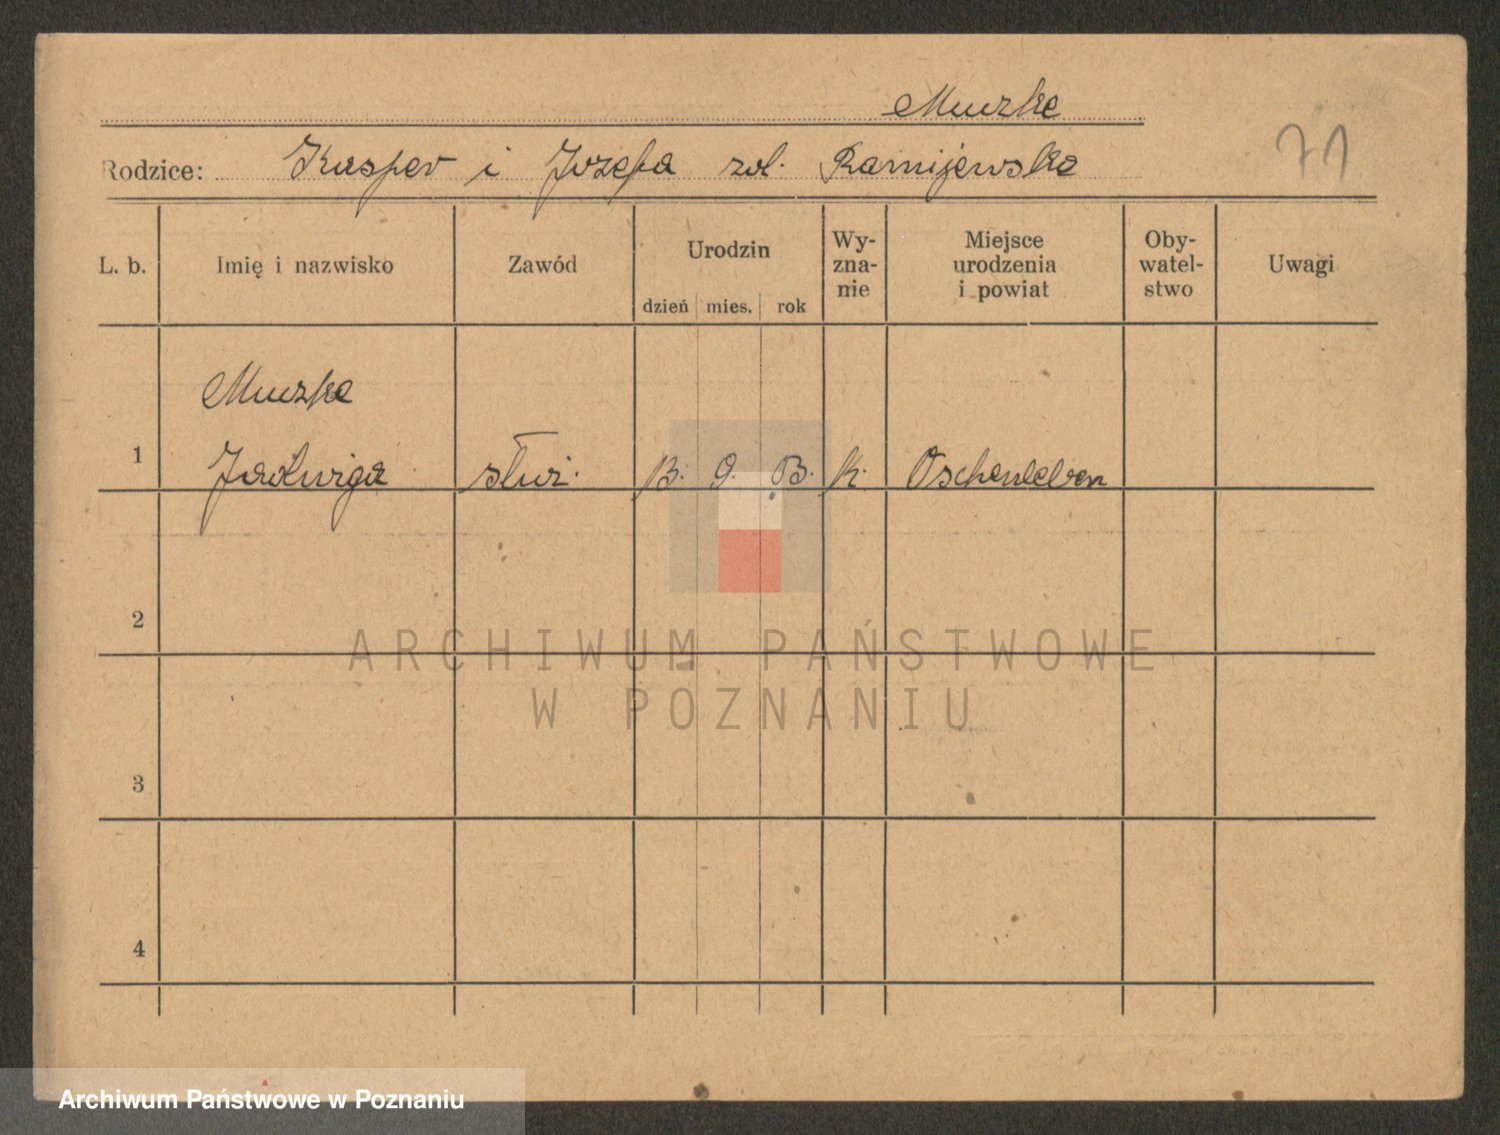 Muszke
71
Rodzice: Kasper i Józefa zol. Ramijewska
L. b. Imię i nazwisko Zawód Urodzin dzień mies. rok Wy-zna-nie Miejsce urodzenia i powiat Oby-watel-stwo Uwagi
Muszke
1 Jadwiga służ. 13. 9. 13. k. Oschersleben
2
3
4
ARCHIWUM PAŃSTWOWE
W POZNANIU
Archiwum Państwowe w Poznaniu